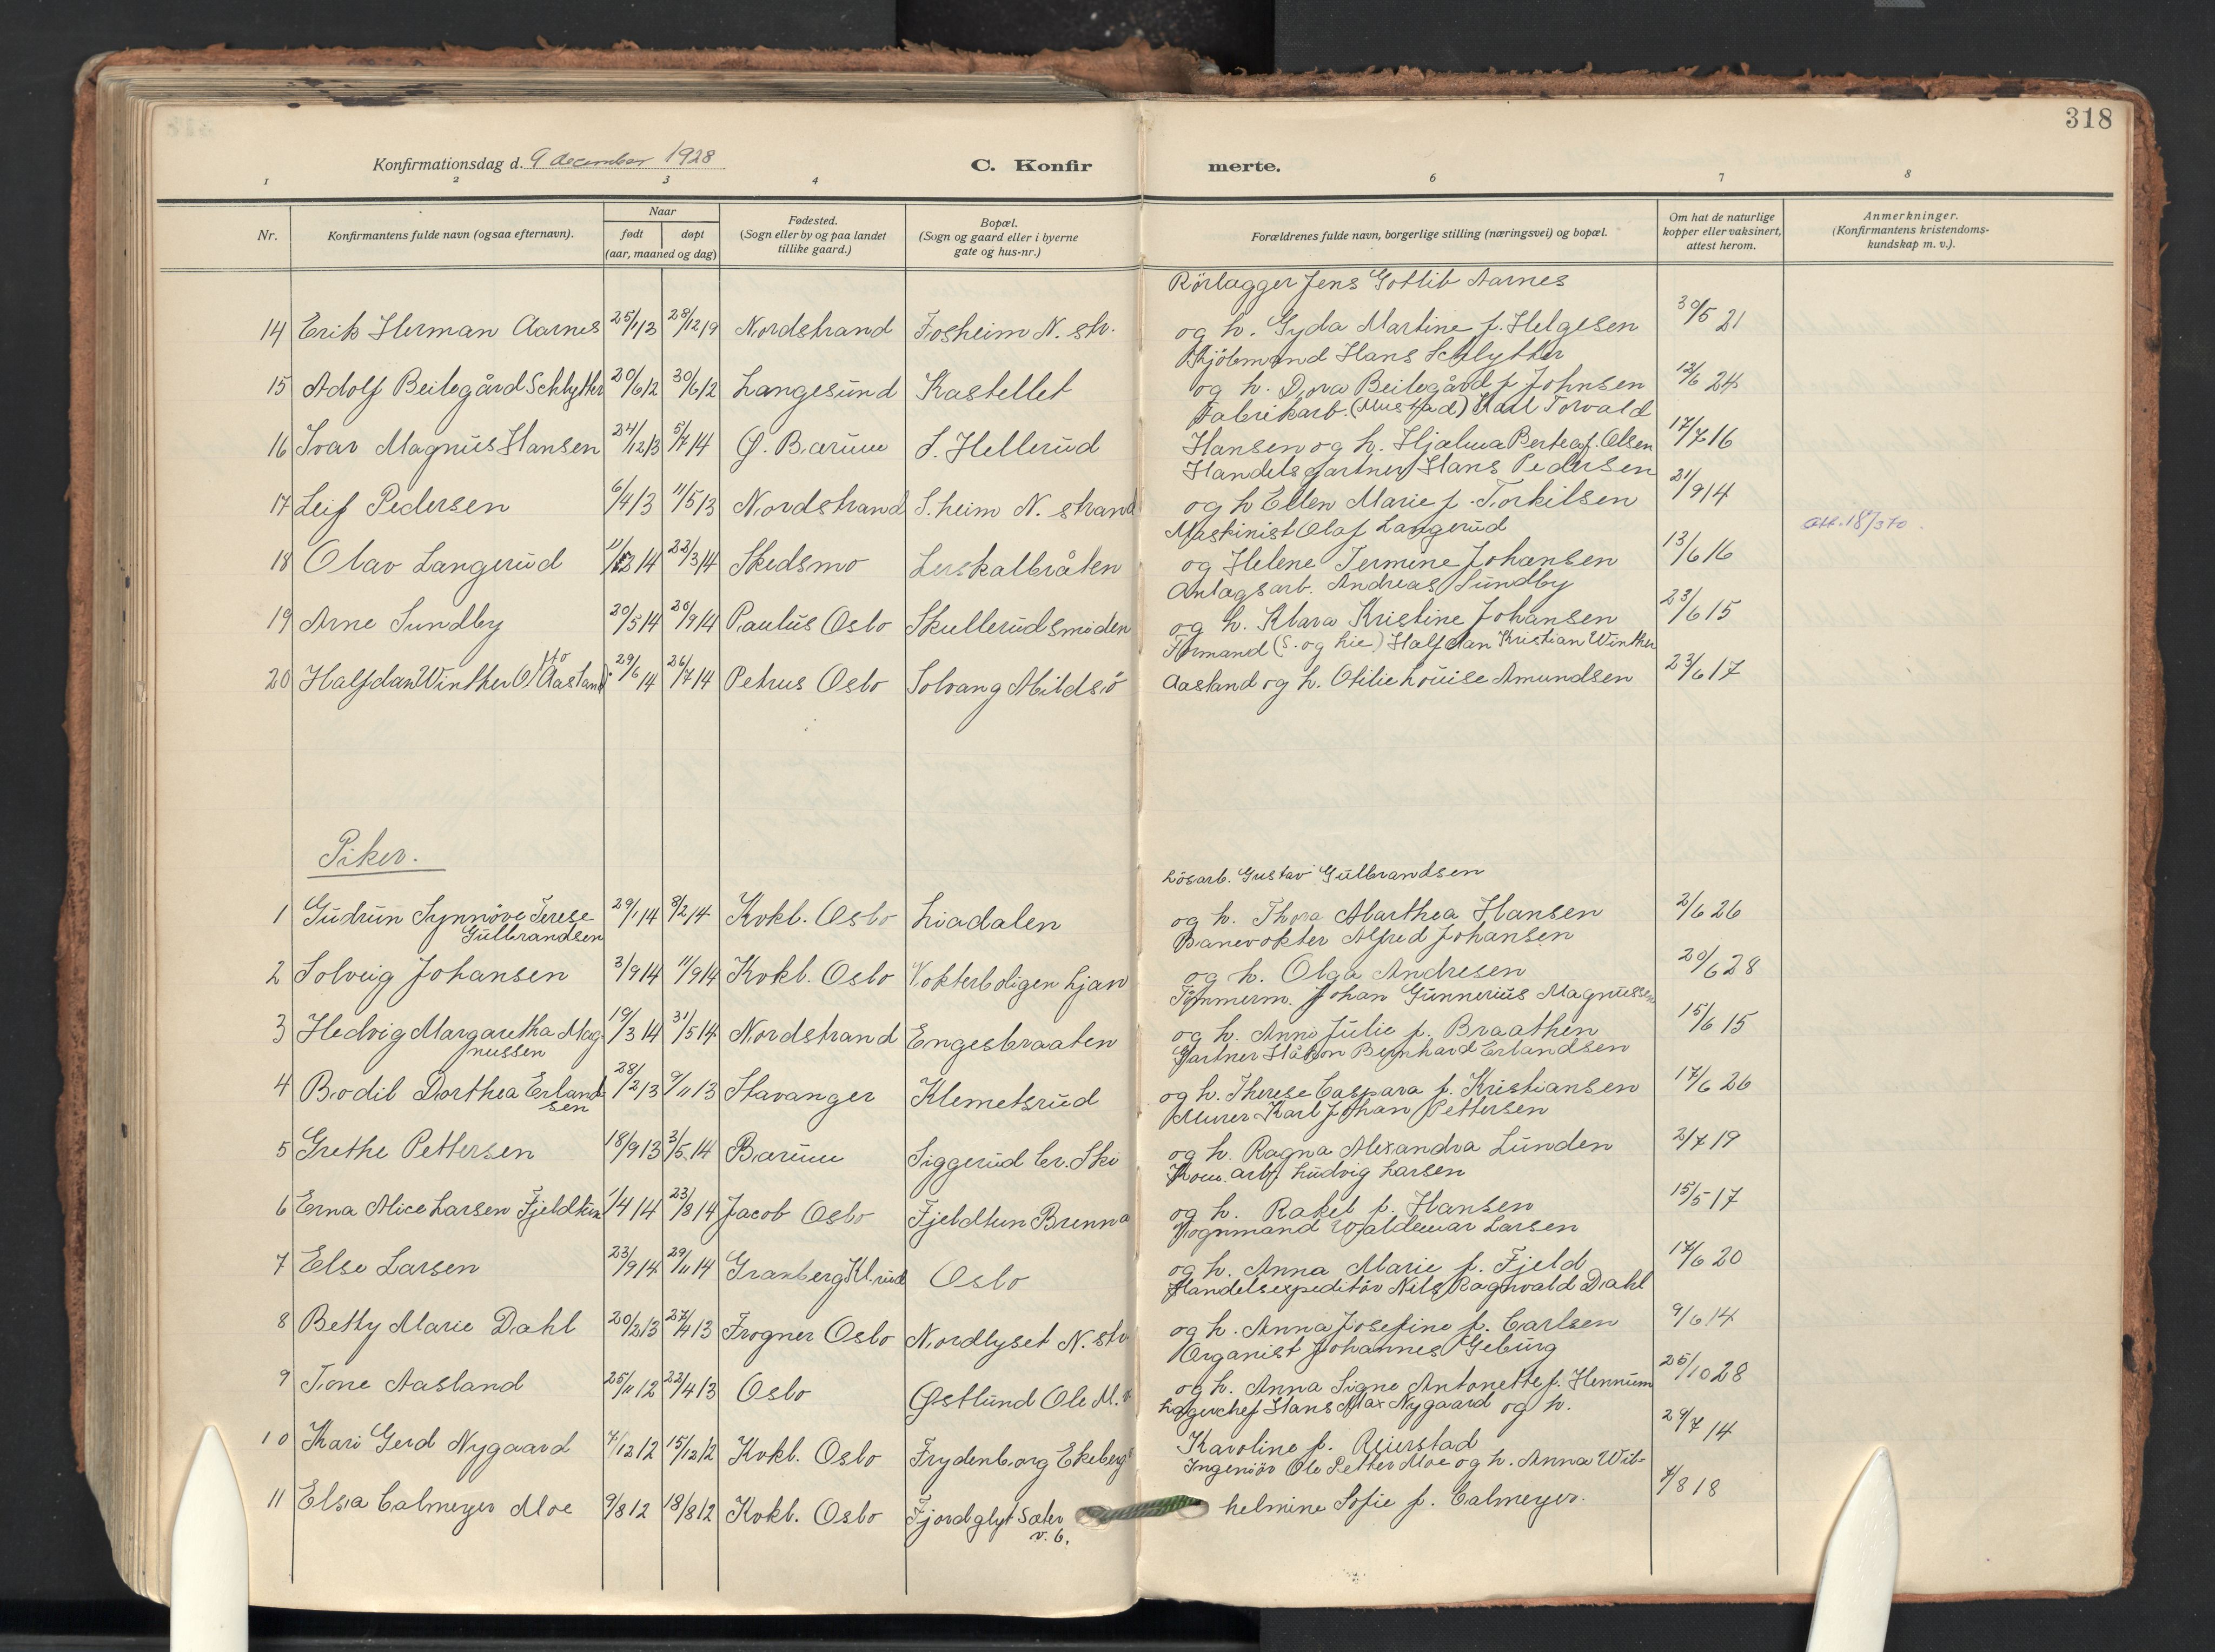 318
Konfirmationsdag d. 9 december 1928 C. Konfir merte.
1 2 3 4 6 7 8
Nr. Konfirmantens fulde navn (ogsaa efternavn). Naar født døpt (aar, maaned og dag) Fødested. (Sogn eller by og paa landet tillike gaard.) Bopæl. (Sogn og gaard eller i byerne gate og hus-nr.) Forældrenes fulde navn, borgerlige stilling (næringsvei) og bopæl. Om hat de naturlige kopper eller vaksinert, attest herom. Anmerkninger. (Konfirmantens kristendomskundskap m. v.).
Rörlægger Jens Gotlib Aarnes
14 Erik Herman Aarnes 25/1 13 28/12 19 Nordstrand Fosheim N. str. og h. Gyda Martine f. Helgesen 30/5 21
Hans Schlytter
15 Adolf Beitegård Schlytter 20/6 12 30/6 12 Langesund Kastellet og h. Dora Beitegård f Johnsen 12/6 24
Fabrikarb. (Mustad) Karl Torvald
16 Ivar Magnus Hansen 24/12 13 5/7 14 Ø. Bærum S. Hellerud Hansen og h. Hjalma Bertea f. Olsen 17/7 16
Handelsgartner Hans Pedersen
17 Leif Pedersen 6/4 13 11/5 13 Nordstrand S.heim N. strand og h Ellen Marie f. Torkilsen 21/9 14
Maskinist Olaf Langerud
18 Olav Langerud 11/2 14 22/3 14 Skedsmo Lerskalbråten og Helene Jermine Johansen 13/6 16 att. 18/7 370.
Anlagsarb. Andreas Sundby
19 Arne Sundby 20/5 14 20/9 14 Paulus Oslo Skullerudsmoden og h. Klara Kristine Johansen 23/6 15
Formand (S. og hie) Halfdan Kristian Winther
20 Halfdan Winther Otto Aasland. 29/6 14 26/7 14 Petrus Oslo Solvang Mildsö Aasland og h. Otilie Louise Amundsen 23/6 17
Piker.
Lösarb. Gustav Gulbrandsen
1 Gudrun Synnöve Terese 29/1 14 8/2 14 Kvkb. Oslo Liadalen og h. Thora Marthea Hansen 2/6 26
Gulbrandsen
Banevokter Alfred Johansen
2 Solveig Johansen 3/9 14 11/9 14 Kvkb. Oslo Vokterboligen Ljan og h. Olga Andresen 20/6 28
Tömmerm. Johan Gunnerius Magnussen
3 Hedvig Margaretha Mag 19/3 14 31/5 14 Nordstrand Engesbraaten og h. Anna Julie f. Braathen 15/6 15
nussen
Gartner Håkon Bernhard Erlandsen
4 Bodil Dorthea Erland 28/2 13 9/11 13 Stavanger Klemetsrud og h. Therese Caspara f. Kristiansen 17/6 26
sen
Murer Karl Johan Pettersen
5 Grethe Pettersen 18/9 13 3/5 14 Bærum Siggerud br. Ski og h. Ragna Alexandra Lunden 2/7 19
Kom. arb. Ludvig Larsen
6 Erna Alice Larsen Fjeldtun 1/4 14 23/8 14 Jacob Oslo Fjeldtun Brenna og h. Rakel f. Hansen 15/5 17
Vognmand Waldemar Larsen
7 Else Larsen 23/9 14 29/11 14 Granberg Kl.rud Oslo og h. Anna Marie f. Fjeld 17/6 20
Handelsexpeditör Nils Ragnvald Dahl
8 Betty Marie Dahl 20/2 13 27/4 13 Frogner Oslo Nordlyset N. str og h. Anna Josefine f. Carlsen 9/6 14
Organist Johannes Geburg
9 Tone Aasland 25/11 12 22/4 13 Oslo Østlund Ole M. v. og h. Anna Signe Antonette f. Hennum 25/10 28
Lagerchef Hans Max Nygaard og h.
10 Kari Gerd Nygaard 7/12 12 15/12 12 Kvkb. Oslo Frydenborg Ekeberg Karoline f. Reierstad 29/7 14
Ingeniör Ole Petter Moe og h. Anna Wil-
11 Elsa Calmeyer Moe 9/8 12 18/8 12 Kvkb. Oslo Fjordglyt Sæter helmine Sofie f. Calmeyer. 7/8 18
v. 6.